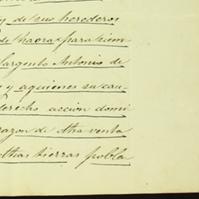 y de sus herederos
de haora para siem
Sargento Antonio de
s y aquienes su cau
derecho accion domi
razon de dha venta
dhas tierras pobla